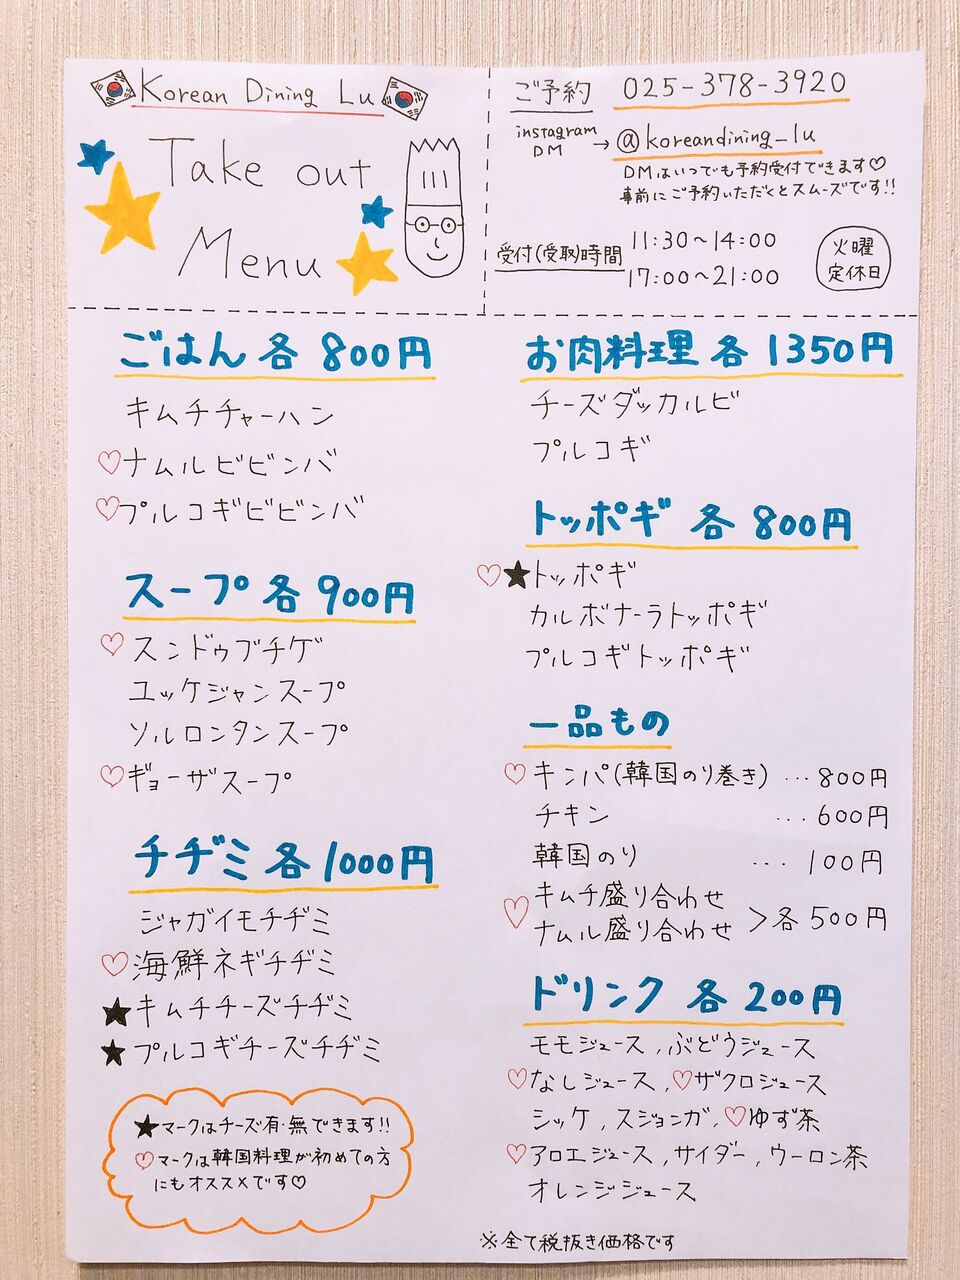 Korean Dining Lu
Take out
Menu
ご予約 025-378-3920
instagram
DM → @koreandining_lu
DMはいつでも予約受付できます♡
事前にご予約いただくとスムーズです!!
受付(受取)時間
11:30〜14:00
17:00〜21:00
火曜
定休日
ごはん 各 800円
キムチチャーハン
♡ナムルビビンバ
♡プルコギビビンバ
スープ 各 900円
♡スンドゥブチゲ
ユッケジャンスープ
ソルロンタンスープ
♡ギョーザスープ
チヂミ 各 1000円
ジャガイモチヂミ
♡海鮮ネギチヂミ
★キムチチーズチヂミ
★プルコギチーズチヂミ
★マークはチーズ有・無できます!!
♡マークは韓国料理が初めての方
にもオススメです♡
お肉料理 各 1350円
チーズダッカルビ
プルコギ
トッポギ 各 800円
♡★トッポギ
カルボナーラトッポギ
プルコギトッポギ
一品もの
♡キンパ(韓国のり巻き) ... 800円
チキン ... 600円
韓国のり ... 100円
♡キムチ盛り合わせ
ナムル盛り合わせ > 各 500円
ドリンク 各 200円
モモジュース , ぶどうジュース
♡なしジュース , ♡ザクロジュース
シッケ , スジョンガ , ♡ゆず茶
♡アロエジュース , サイダー , ウーロン茶
オレンジジュース
※全て税抜き価格です